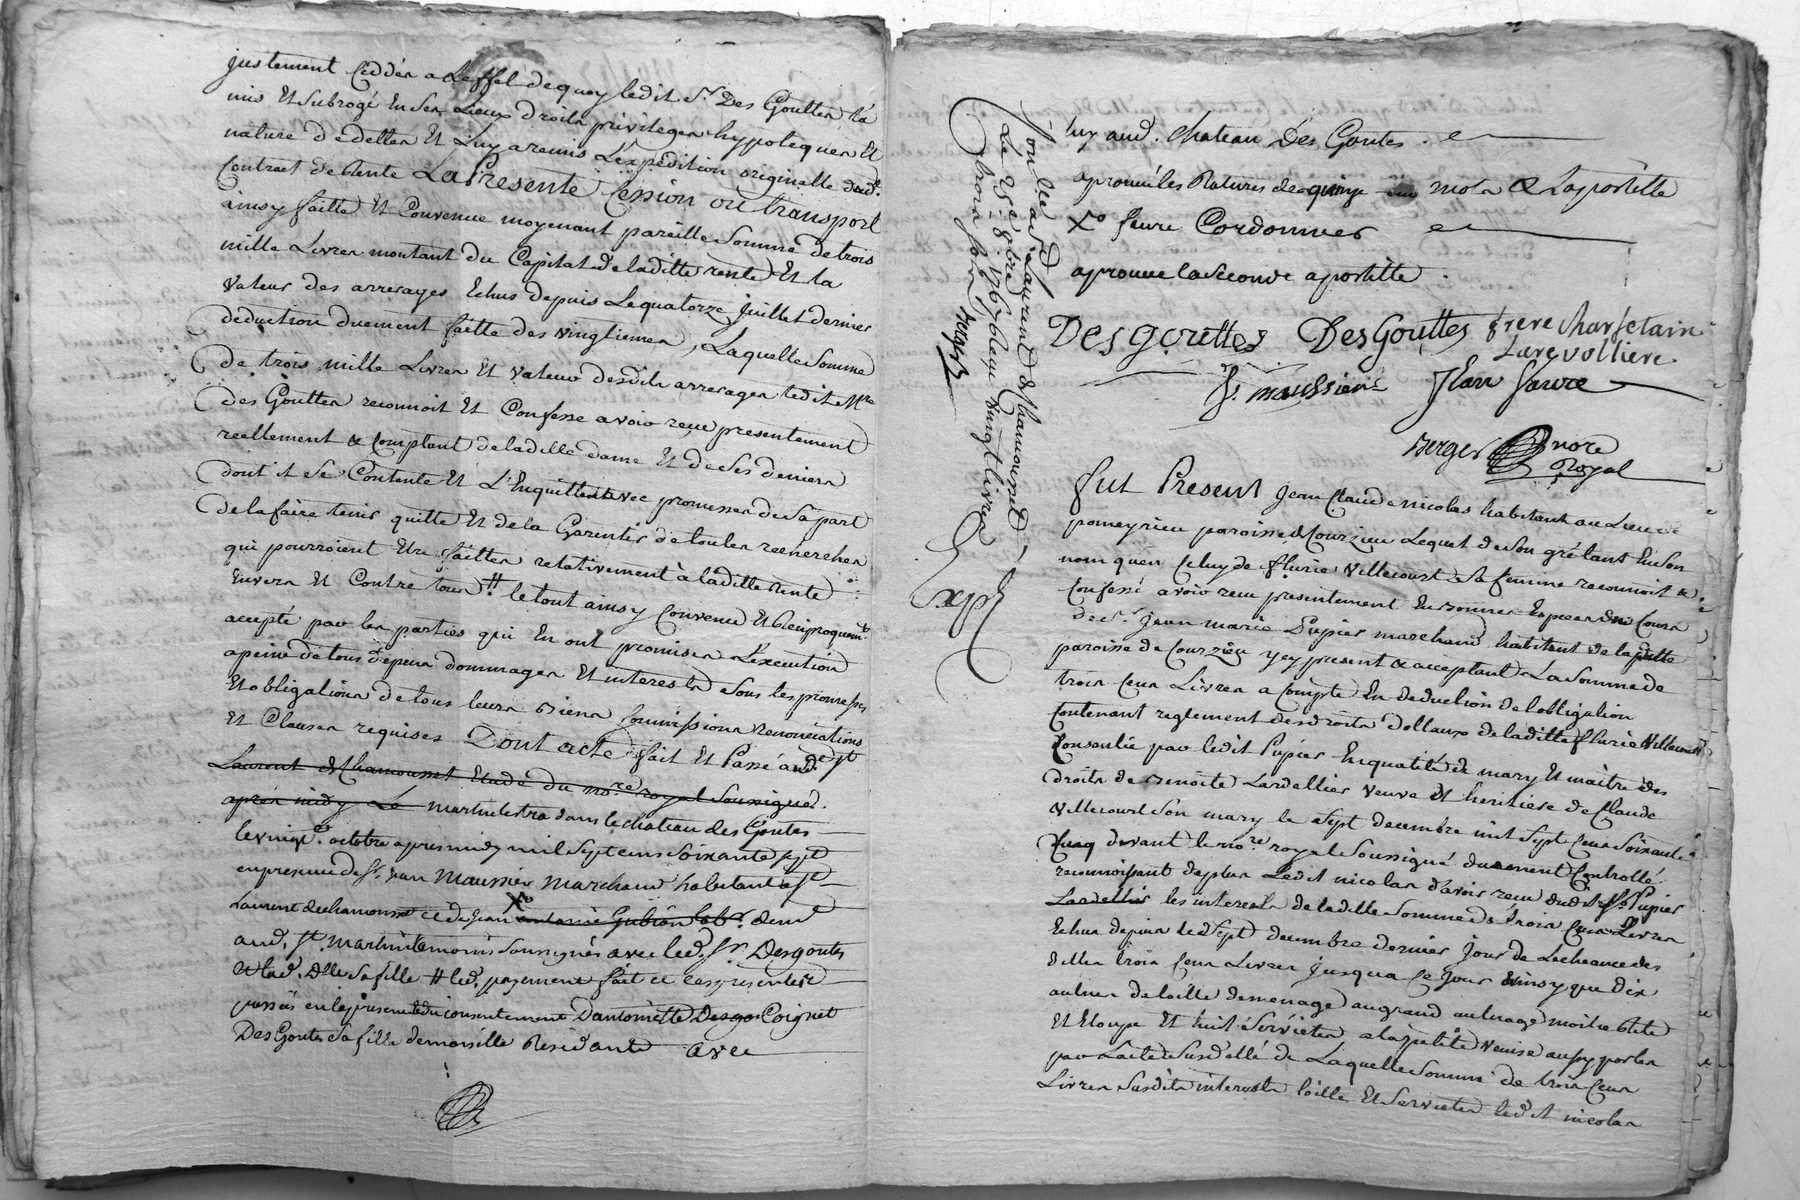 justement Cedder a Leffet dequoy ledit Sr. Des Goutten La
mis Et Subrogé En Sen Lieux Droitn privilegen hypotequen Et
nature de detten Et Luy a remis L'expedition originalle dud.
Contract de Rente La Presente Cession ou transport
ainsy faitte Et Convenue moyenant pareille Somme de trois
mille Livren montant du Capital de laditte rente Et la
Valeur des arrerages Echus depuis Le quatorze Juillet dernier
deduction duement faitte des Vingtiemen, Laquelle Somme
de trois mille Livren Et Valeur desdits arreragen ledit Mre
des Goutten reconnoit Et Confesse avoir reçu presentement
reellement & Comptant de laditte dame Et de Ses deniern
dont il Se Contente Et L'Enquitte avec promessen de Sa part
de la faire tenir quitte Et de la Garentir de touten recherchen
qui pourroient Etre faitten relativement à laditte Rente
Envern Et Contre tous # le tout ainsy Convenu Et Reciproquemt
accepté par len partien qui En ont promisen L'execution
a peine de tous depens dommagen Et interestn Sous les promesses
Et obligations de tous leurs Biens Soumissions renonciations
Et Clausen requises Dont acte fait Et Passé aud. St
Laurent de Chamousset Etude du nore royal Soussigné.
apren midy Le martin lestra dans le chateau des Goutes
le vingt octobre apres midy mil Sept cens Soixante Sept
en presence de Sr. jean Maussier Marchand habitant a St
Laurent de chamousset et de Jean Xo antoine Gubian labr. demt
aud. St. Martin temoins Soussignés avec led. Sr. Desgoutes
et lad. Dlle Sa fille # led. payement fait et ces presentes
passées en la presence et du consentement D'antoinette Desgo Coignet
Des Goutes Sa fille demoiselle Residante avec
luy aud. chateau Des Goutes.
aprouvé les Ratures de quinze mots & L'apostille
Xo favre Cordonnier
aprouve la Seconde apostille.
Desgouttes DesGouttes frere Charles etain
Larevolliere
J. maussier Jean favre
Berger nore
Royal
Con lé a St Laurent de Chamousset
Le 25e 8bre 1767 Reçu vingt livres
Berger
Exp
fut Present Jean Claude nicolas habitant au Lieu de
pomeyrieu paroisse de Courzieu Lequel de Son gré tant En Son
nom qu'en Celuy de fleurie Villecourt Sa femme reconnoit &
Confesse avoir reçu presentement En Bonnen Especen du Courn
de Sr. jean marie Pupier marchand habitant de laditte
paroisse de Courzieu y cy present & acceptant La Somme de
trois Cens Livren a Compte En deduction de l'obligation
Contenant reglement des droits dottaux de laditte fleurie Villecourt
Consentie par ledit Pupier En qualité de mary Et maitre des
droits de Benoite Lardellier Veuve Et heritiere de Claude
Villecourt Son mary le Sept decembre mil Sept Cens Soixante
Cinq devant le nore royal Soussigné duement Controllé
reconnoissant de plus Ledit nicolas d'avoir reçu dudit Sr. Pupier
Lardellier les interests de laditte Somme de trois Cens Livren
Echus depuis le dit Sept decembre dernier jour de L'echeance des
ditten trois Cens Livren jusqua Ce Jour Ainsy que dix
aulnen de toille de menage au grand aulnage moitié Rite
Et Etoupe Et huit Servietten a la petite Venise aussy porten
par L'acte Susdatté de Laquelle Somme de trois Cens
Livren Susdits interests toille Et Servietten ledit nicolas